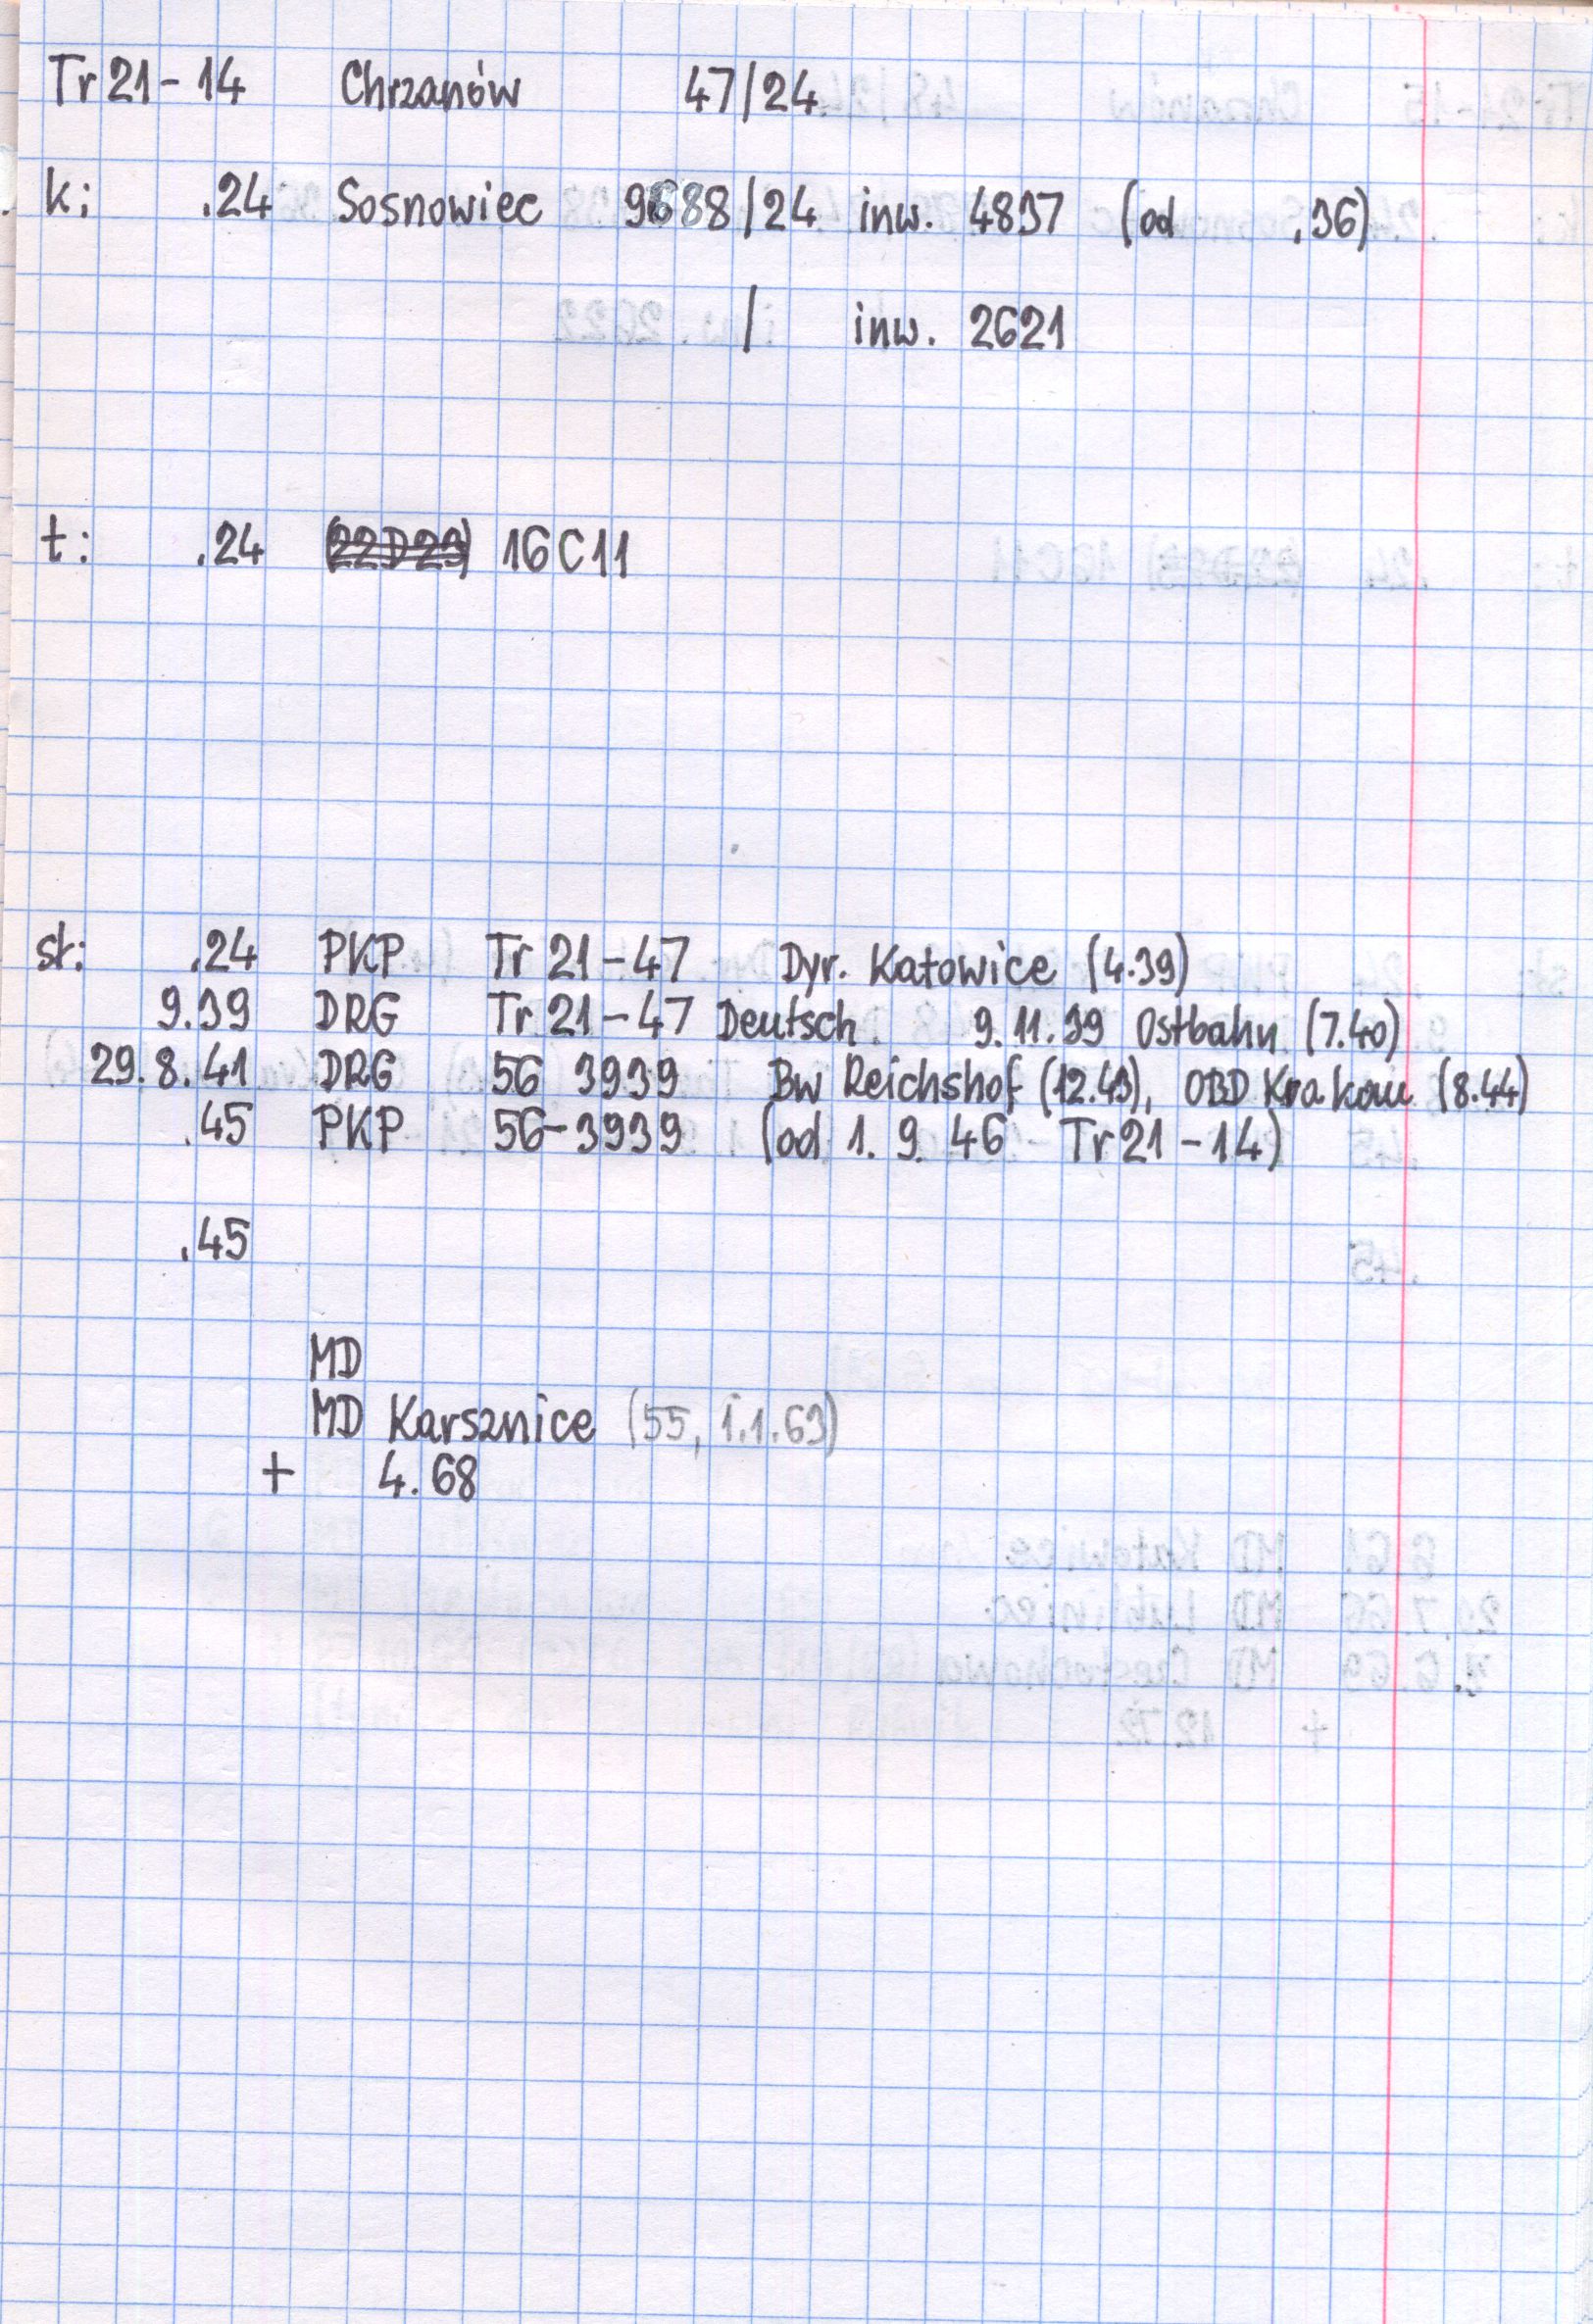 Tr 21-14 Chrzanów 47/24
k: .24 Sosnowiec 9688/24 inw. 4837 (od .36)
/ inw. 2621
t: .24 (22D23) 16C11
st: .24 PKP Tr 21-47 Dyr. Katowice (4.39)
9.39 DRG Tr 21-47 Deutsch 9.11.39 Ostbahn (7.40)
29.8.41 DRG 56 3939 Bw Reichshof (12.43), OBD Krakau (8.44)
.45 PKP 56-3939 (od 1.9.46 Tr 21-14)
.45
MD
MD Karsznice (55, 1.1.63)
+ 4.68